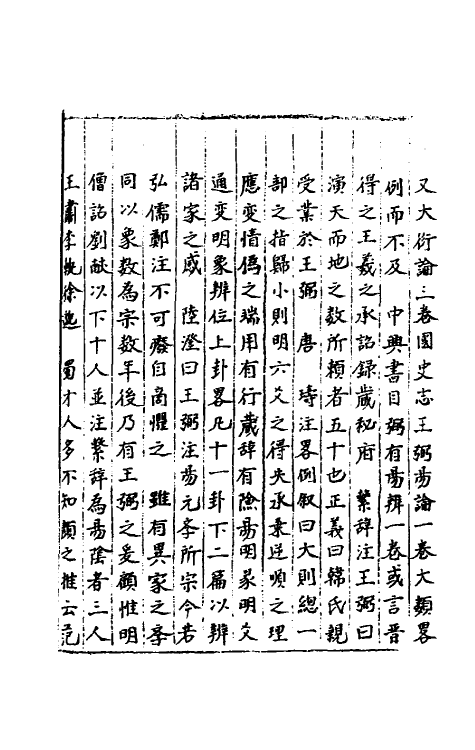 又大衍論三卷國史志王弼昜論一卷大類畧
例而不及　中興書目弼有昜辨一卷或言晋
得之王羲之承詔録歲秘府　繋辞注王弼曰
演天而地之数所頼者五十也正義曰韓氏親
受業於王弼　唐　璹注畧例叙曰大則總一
部之指歸小則明六爻之得失承乗逆順之理
應变情偽之端用有行蔵辞有險昜明彖明爻
通变明象辨位上卦畧凡十一卦下二篇以辨
諸家之惑　陸澄曰王弼注昜元㕘所宗今若
弘儒鄭注不可癈自商懼之　雖有異家之㕘
同以象数為宗数年後乃有王弼之爰顧惟明
僧詔劉献以下十人並注繋辞為昜隂者三人
王肅李悦徐邈　蜀才人多不知類之推云范